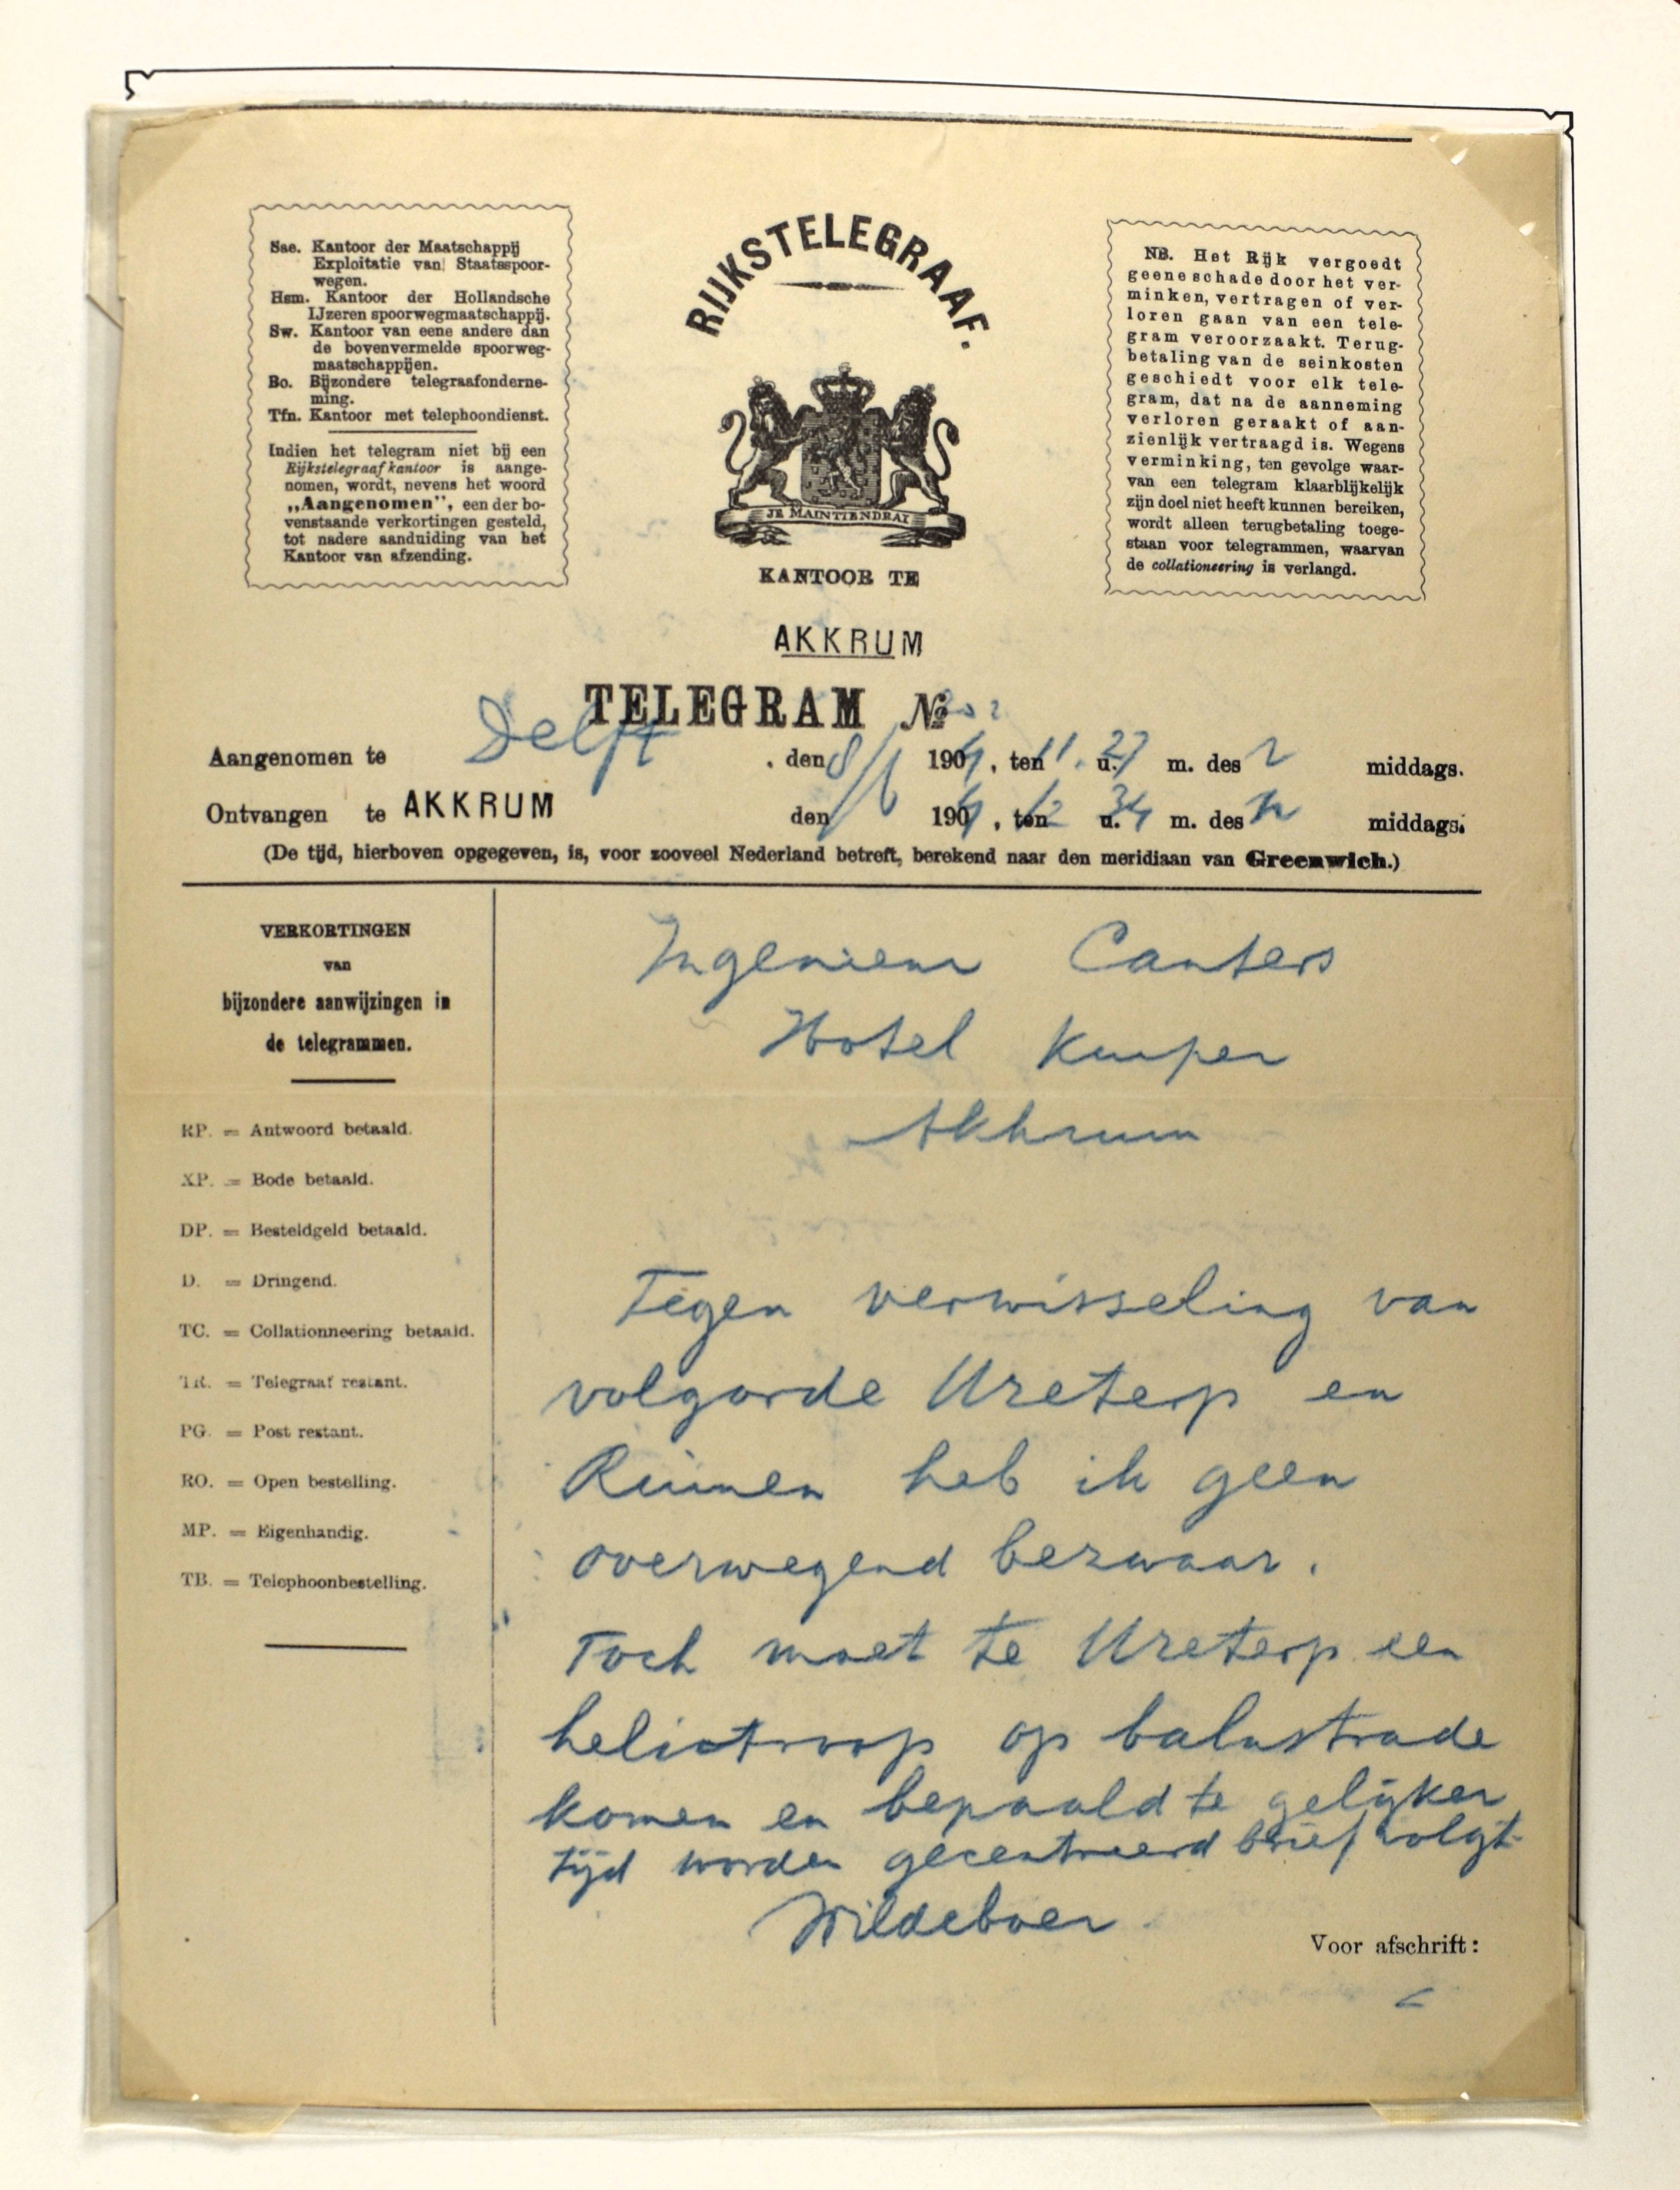 Sae. Kantoor der Maatschappij
Exploitatie van Staatsspoor-
wegen.
Hsm. Kantoor der Hollandsche
IJzeren spoorwegmaatschappij.
Sw. Kantoor van eene andere dan
de bovenvermelde spoorweg-
maatschappijen.
Bo. Bijzondere telegraafonderne-
ming.
Tfn. Kantoor met telephoondienst.
Indien het telegram niet bij een
Rijkstelegraafkantoor is aange-
nomen, wordt, nevens het woord
„Aangenomen", een der bo-
venstaande verkortingen gesteld,
tot nadere aanduiding van het
Kantoor van afzending.
RIJKSTELEGRAAF.
JE MAINTIENDRAI
KANTOOR TE
AKKRUM
NB. Het Rijk vergoedt
geene schade door het ver-
minken, vertragen of ver-
loren gaan van een tele-
gram veroorzaakt. Terug-
betaling van de seinkosten
geschiedt voor elk tele-
gram, dat na de aanneming
verloren geraakt of aan-
zienlijk vertraagd is. Wegens
verminking, ten gevolge waar-
van een telegram klaarblijkelijk
zijn doel niet heeft kunnen bereiken,
wordt alleen terugbetaling toege-
staan voor telegrammen, waarvan
de collationeering is verlangd.
TELEGRAM No
Aangenomen te Delft, den 8/6 1904, ten 11 u. 27 m. des middags.
Ontvangen te AKKRUM den 1904, ten 12 u. 34 m. des n middags.
(De tijd, hierboven opgegeven, is, voor zooveel Nederland betreft, berekend naar den meridiaan van Greenwich.)
VERKORTINGEN
van
bijzondere aanwijzingen in
de telegrammen.
RP. = Antwoord betaald.
XP. = Bode betaald.
DP. = Besteldgeld betaald.
D. = Dringend.
TC. = Collationneering betaald.
TR. = Telegraaf restant.
PG. = Post restant.
RO. = Open bestelling.
MP. = Eigenhandig.
TB. = Telephoonbestelling.
Ingenieur Canters
Hotel Kuiper
Akkrum
Tegen verwisseling van
volgorde Ureterp en
Rinnen heb ik geen
overwegend bezwaar.
Toch moet te Ureterp een
heliotroop op balustrade
komen en bepaald te gelijker
tijd worden gecentreerd brief volgt
Wildeboer
Voor afschrift: